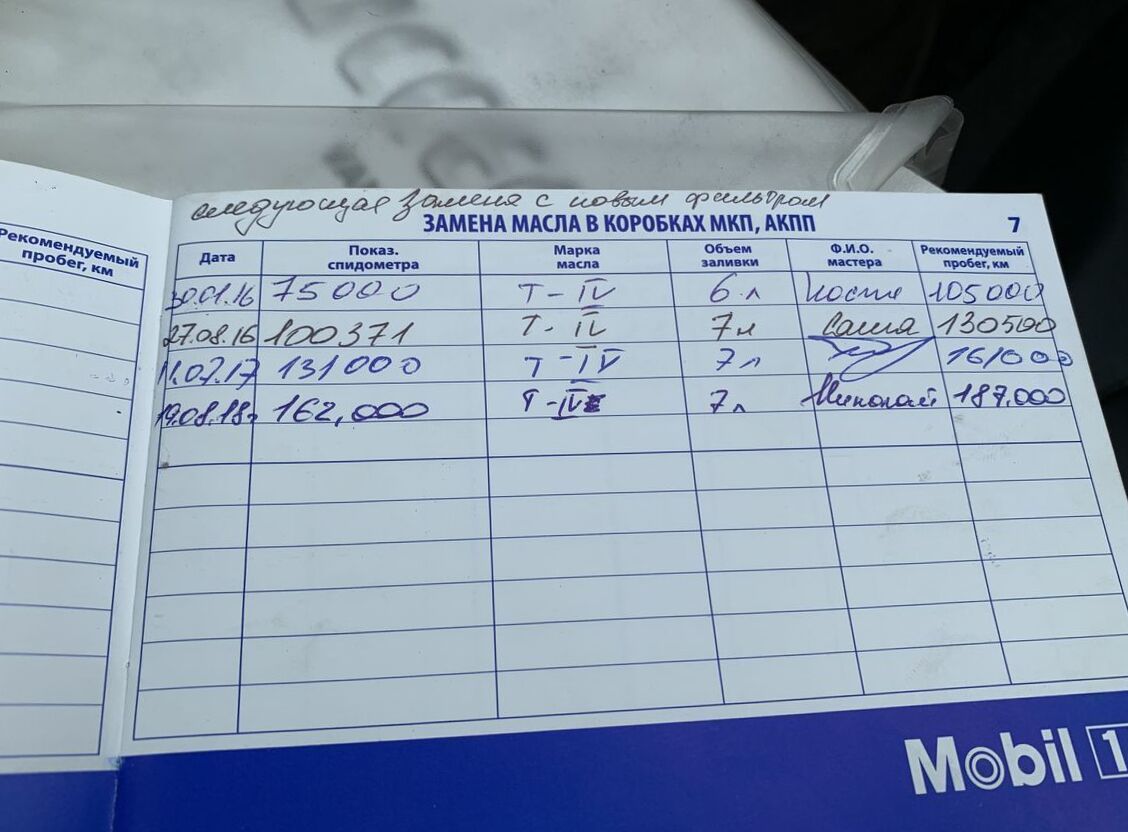 следующая замена с новым фильтром
ЗАМЕНА МАСЛА В КОРОБКАХ МКП, АКПП 7
Рекомендуемый
пробег, км
Дата Показ. спидометра Марка масла Объем заливки Ф.И.О. мастера Рекомендуемый пробег, км
30.01.16 75000 T-IV 6 л Костя 105000
27.08.16 100371 T-IV 7л Саша 130500
11.07.17 131000 T-IV 7л 161000
19.08.18г 162,000 T-IV 7л Николай 187,000
Mobil 1